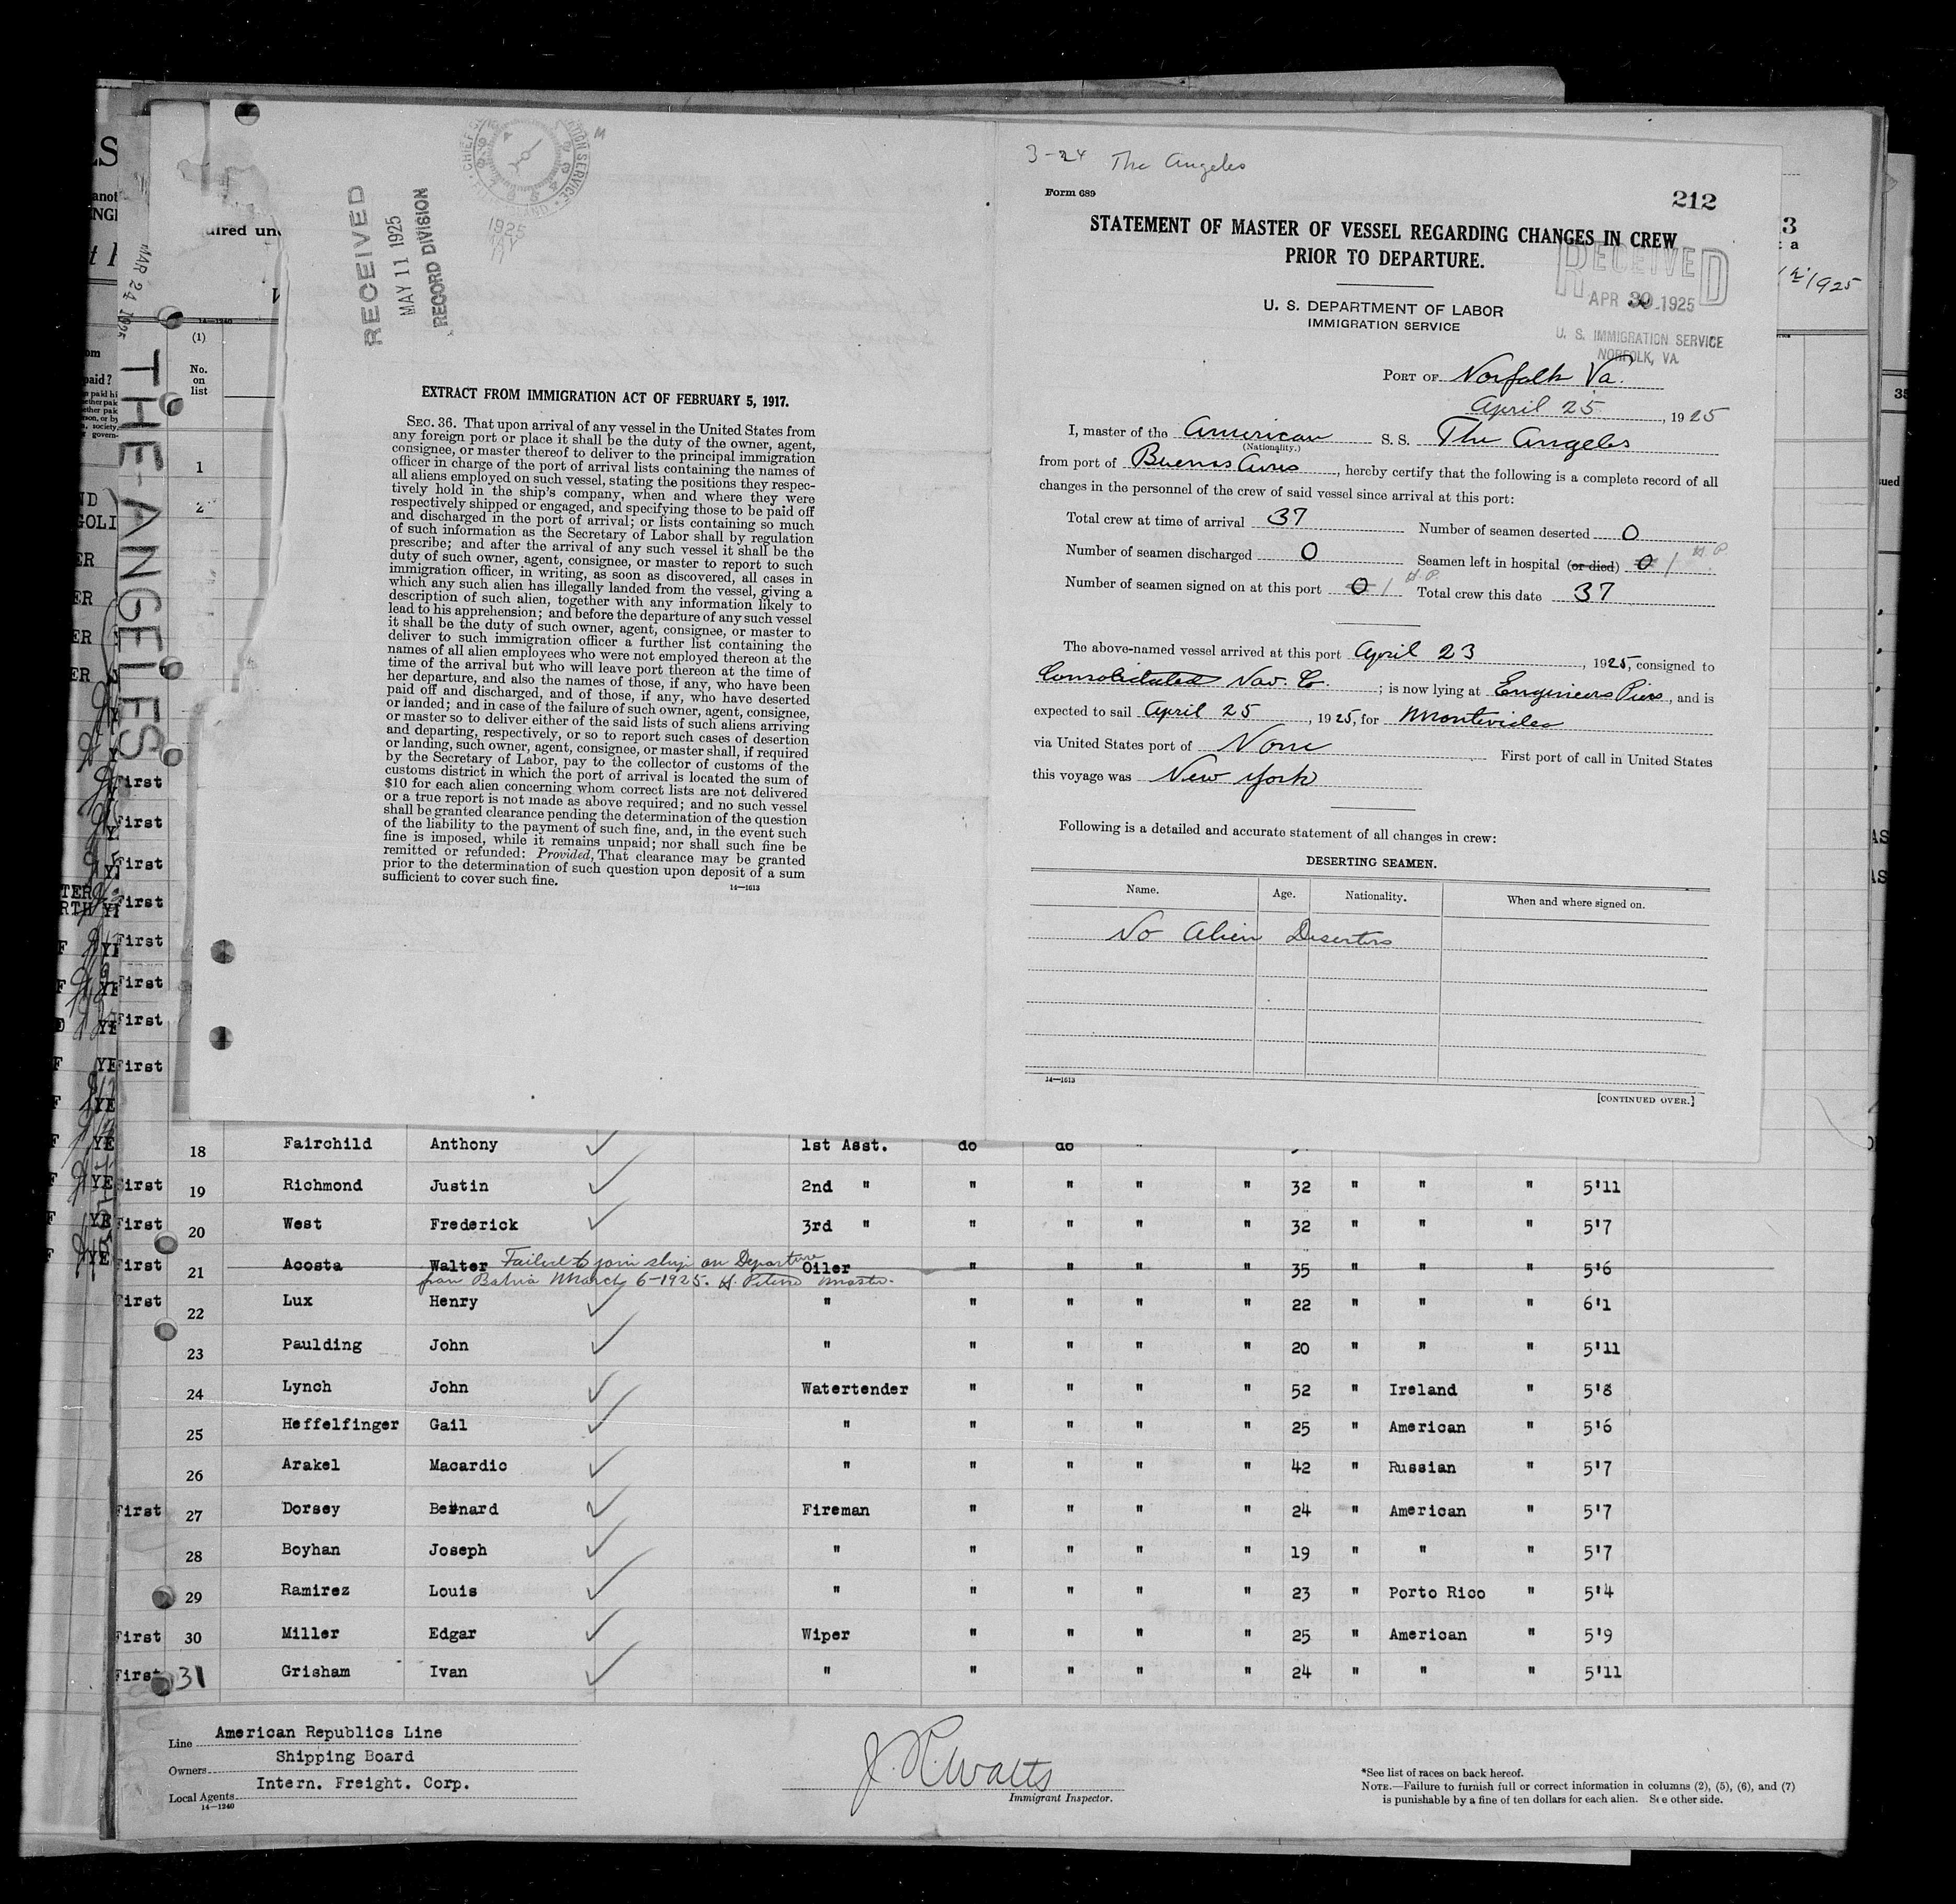 3-24 The Angeles
Form 689
212
STATEMENT OF MASTER OF VESSEL REGARDING CHANGES IN CREW
PRIOR TO DEPARTURE.
U. S. DEPARTMENT OF LABOR
IMMIGRATION SERVICE
RECEIVED
APR 30 1925
U. S. IMMIGRATION SERVICE
NORFOLK, VA.
PORT OF Norfolk Va.
April 25, 1925
I, master of the American S. S. The Angeles
(Nationality.)
from port of Buenos Aires, hereby certify that the following is a complete record of all
changes in the personnel of the crew of said vessel since arrival at this port:
Total crew at time of arrival 37 Number of seamen deserted 0
Number of seamen discharged 0 Seamen left in hospital (or died) 0 1 H.P.
Number of seamen signed on at this port 0 1 H.P. Total crew this date 37
The above-named vessel arrived at this port April 23, 1925, consigned to
Consolidated Nav. Co.; is now lying at Engineers Piers, and is
expected to sail April 25, 1925, for Montevideo
via United States port of None First port of call in United States
this voyage was New York
Following is a detailed and accurate statement of all changes in crew:
DESERTING SEAMEN.
Name. Age. Nationality. When and where signed on.
No Alien Deserters
14—1613
[CONTINUED OVER.]
RECEIVED
MAY 11 1925
RECORD DIVISION
1925
MAY
11
EXTRACT FROM IMMIGRATION ACT OF FEBRUARY 5, 1917.
SEC. 36. That upon arrival of any vessel in the United States from
any foreign port or place it shall be the duty of the owner, agent,
consignee, or master thereof to deliver to the principal immigration
officer in charge of the port of arrival lists containing the names of
all aliens employed on such vessel, stating the positions they respec-
tively hold in the ship's company, when and where they were
respectively shipped or engaged, and specifying those to be paid off
and discharged in the port of arrival; or lists containing so much
of such information as the Secretary of Labor shall by regulation
prescribe; and after the arrival of any such vessel it shall be the
duty of such owner, agent, consignee, or master to report to such
immigration officer, in writing, as soon as discovered, all cases in
which any such alien has illegally landed from the vessel, giving a
description of such alien, together with any information likely to
lead to his apprehension; and before the departure of any such vessel
it shall be the duty of such owner, agent, consignee, or master to
deliver to such immigration officer a further list containing the
names of all alien employees who were not employed thereon at the
time of the arrival but who will leave port thereon at the time of
her departure, and also the names of those, if any, who have been
paid off and discharged, and of those, if any, who have deserted
or landed; and in case of the failure of such owner, agent, consignee,
or master so to deliver either of the said lists of such aliens arriving
and departing, respectively, or so to report such cases of desertion
or landing, such owner, agent, consignee, or master shall, if required
by the Secretary of Labor, pay to the collector of customs of the
customs district in which the port of arrival is located the sum of
$10 for each alien concerning whom correct lists are not delivered
or a true report is not made as above required; and no such vessel
shall be granted clearance pending the determination of the question
of the liability to the payment of such fine, and, in the event such
fine is imposed, while it remains unpaid; nor shall such fine be
remitted or refunded: Provided, That clearance may be granted
prior to the determination of such question upon deposit of a sum
sufficient to cover such fine.
14—1613
MAR 24 1925
THE ANGELES
14—1240
(1)
No.
on
list
1
2
First
First
First
First
First
First
First
First
18 Fairchild Anthony 1st Asst. do do "
First 19 Richmond Justin 2nd " " " " " 32 " " " 5'11
First 20 West Frederick 3rd " " " " " 32 " " " 5'7
First 21 Acosta Walter Oiler " " " " 35 " " " 5'6
Failed to join ship on Departure
from Bahia March 6-1925. H. Peters master.
First 22 Lux Henry " " " " " 22 " " " 6'1
23 Paulding John " " " " " 20 " " " 5'11
24 Lynch John Watertender " " " " 52 " Ireland " 5'8
25 Heffelfinger Gail " " " " " 25 " American " 5'6
26 Arakel Macardic " " " " " 42 " Russian " 5'7
First 27 Dorsey Bernard Fireman " " " " 24 " American " 5'7
28 Boyhan Joseph " " " " " 19 " " 5'7
29 Ramirez Louis " " " " " 23 " Porto Rico " 5'4
First 30 Miller Edgar Wiper " " " " 25 " American " 5'9
First 31 Grisham Ivan " " " " " 24 " " " 5'11
Line American Republics Line
Owners Shipping Board
Local Agents Intern. Freight. Corp.
14—1240
J. R. Watts
Immigrant Inspector.
*See list of races on back hereof.
NOTE.—Failure to furnish full or correct information in columns (2), (5), (6), and (7)
is punishable by a fine of ten dollars for each alien. See other side.